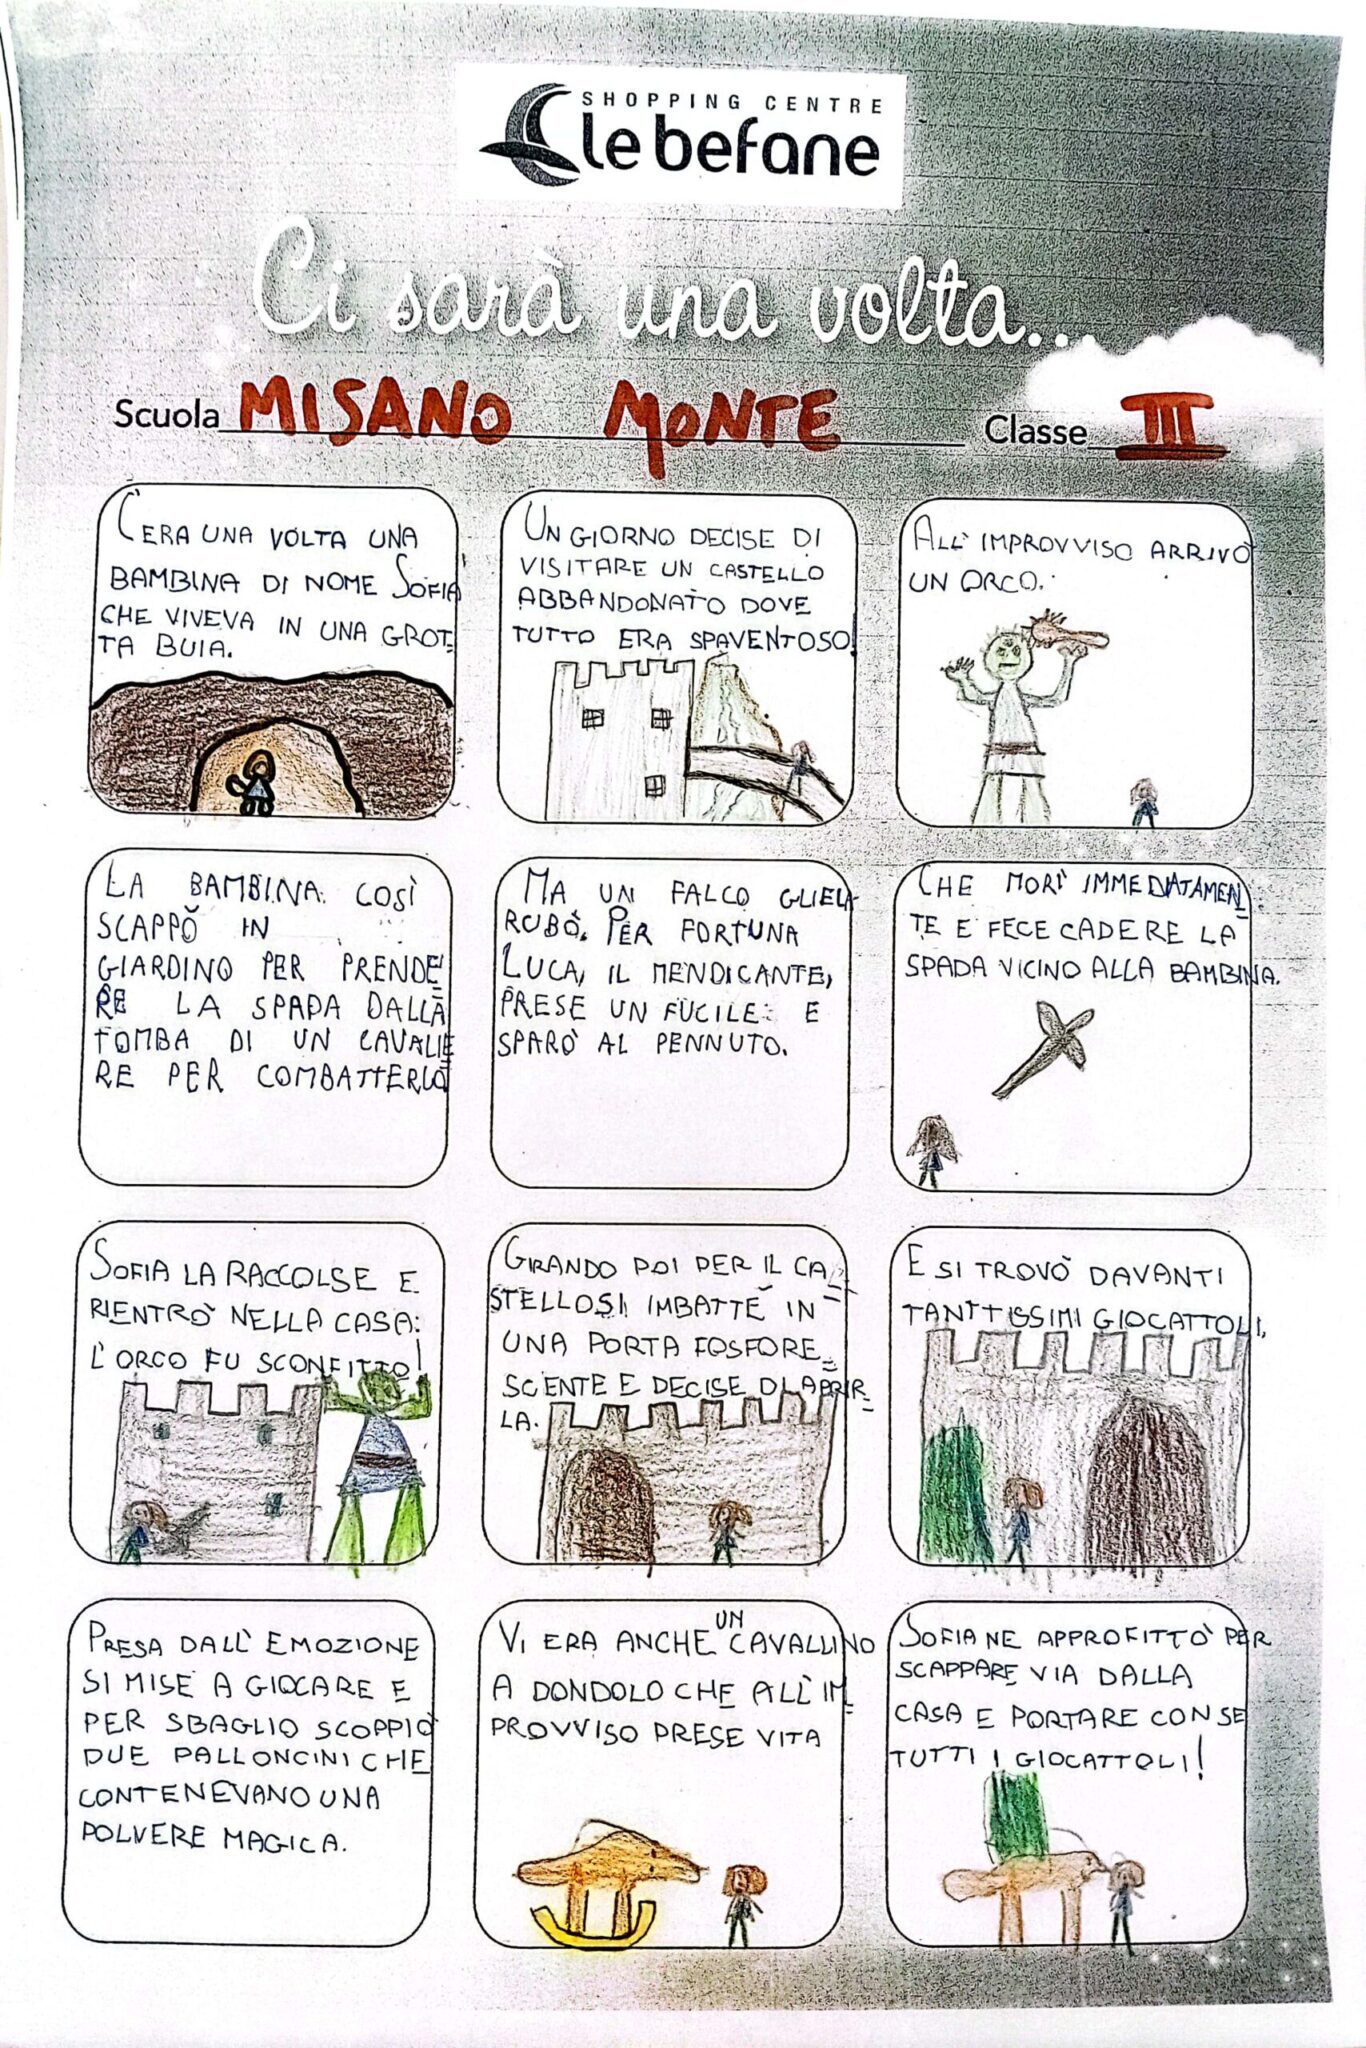 SHOPPING CENTRE
le befane
Ci sarà una volta...
Scuola MISANO MONTE Classe III
C'ERA UNA VOLTA UNA
BAMBINA DI NOME SOFIA
CHE VIVEVA IN UNA GROT-
TA BUIA.
UN GIORNO DECISE DI
VISITARE UN CASTELLO
ABBANDONATO DOVE
TUTTO ERA SPAVENTOSO.
ALL'IMPROVVISO ARRIVÒ
UN ORCO.
LA BAMBINA COSÌ
SCAPPÒ IN
GIARDINO PER PRENDE
RE LA SPADA DALLA
TOMBA DI UN CAVALIE
RE PER COMBATTERLO
MA UN FALCO GLIELA
RUBÒ. PER FORTUNA
LUCA, IL MENDICANTE,
PRESE UN FUCILE E
SPARÒ AL PENNUTO.
CHE MORÌ IMMEDIATAMEN
TE E FECE CADERE LA
SPADA VICINO ALLA BAMBINA.
SOFIA LA RACCOLSE E
RIENTRÒ NELLA CASA:
L'ORCO FU SCONFITTO!
GIRANDO POI PER IL CA
STELLO SI IMBATTÉ IN
UNA PORTA FOSFORE
SCENTE E DECISE DI APRIR
LA.
E SI TROVÒ DAVANTI
TANTISSIMI GIOCATTOLI.
PRESA DALL'EMOZIONE
SI MISE A GIOCARE E
PER SBAGLIO SCOPPIÒ
DUE PALLONCINI CHE
CONTENEVANO UNA
POLVERE MAGICA.
VI ERA ANCHE UN CAVALLINO
A DONDOLO CHE ALL'IM
PROVVISO PRESE VITA
SOFIA NE APPROFITTÒ PER
SCAPPARE VIA DALLA
CASA E PORTARE CON SE
TUTTI I GIOCATTOLI!